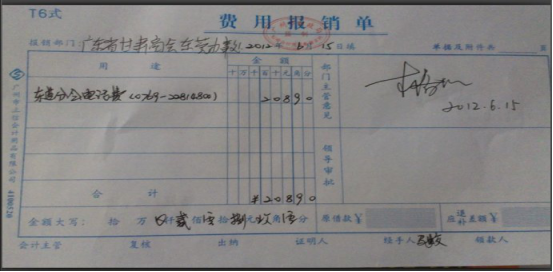 T6式
费用报销单
报销部门:广东省甘肃商会东莞办事处 2012年6月15日填 单据及附件共 页
用途 金额 部门主管意见
十万千百十元角分
东莞分会电话费(0769-22814800) 20890
2012.6.15
领导审批
合计 ¥20890
金额大写: 拾 万 仟贰佰零拾捌元玖角零分 原借款¥ 应退补差额¥
会计主管 复核 出纳 证明人 经手人 领款人